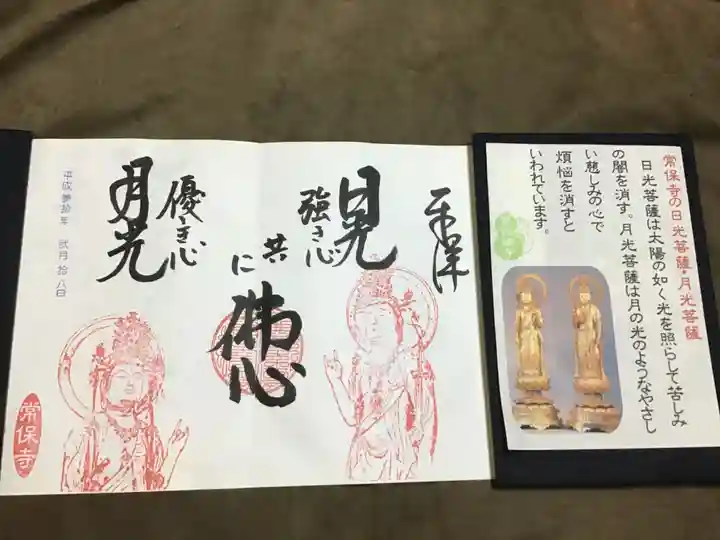 常保寺の日光菩薩・月光菩薩
日光菩薩は太陽の如く光を照らして苦しみ
の闇を消す。月光菩薩は月の光のようなやさし
い慈しみの心で
煩悩を消すと
いわれています。
奉拝
日光
強き心
共
に
佛心
優き心
月光
平成参拾年 弐月拾八日
常保寺